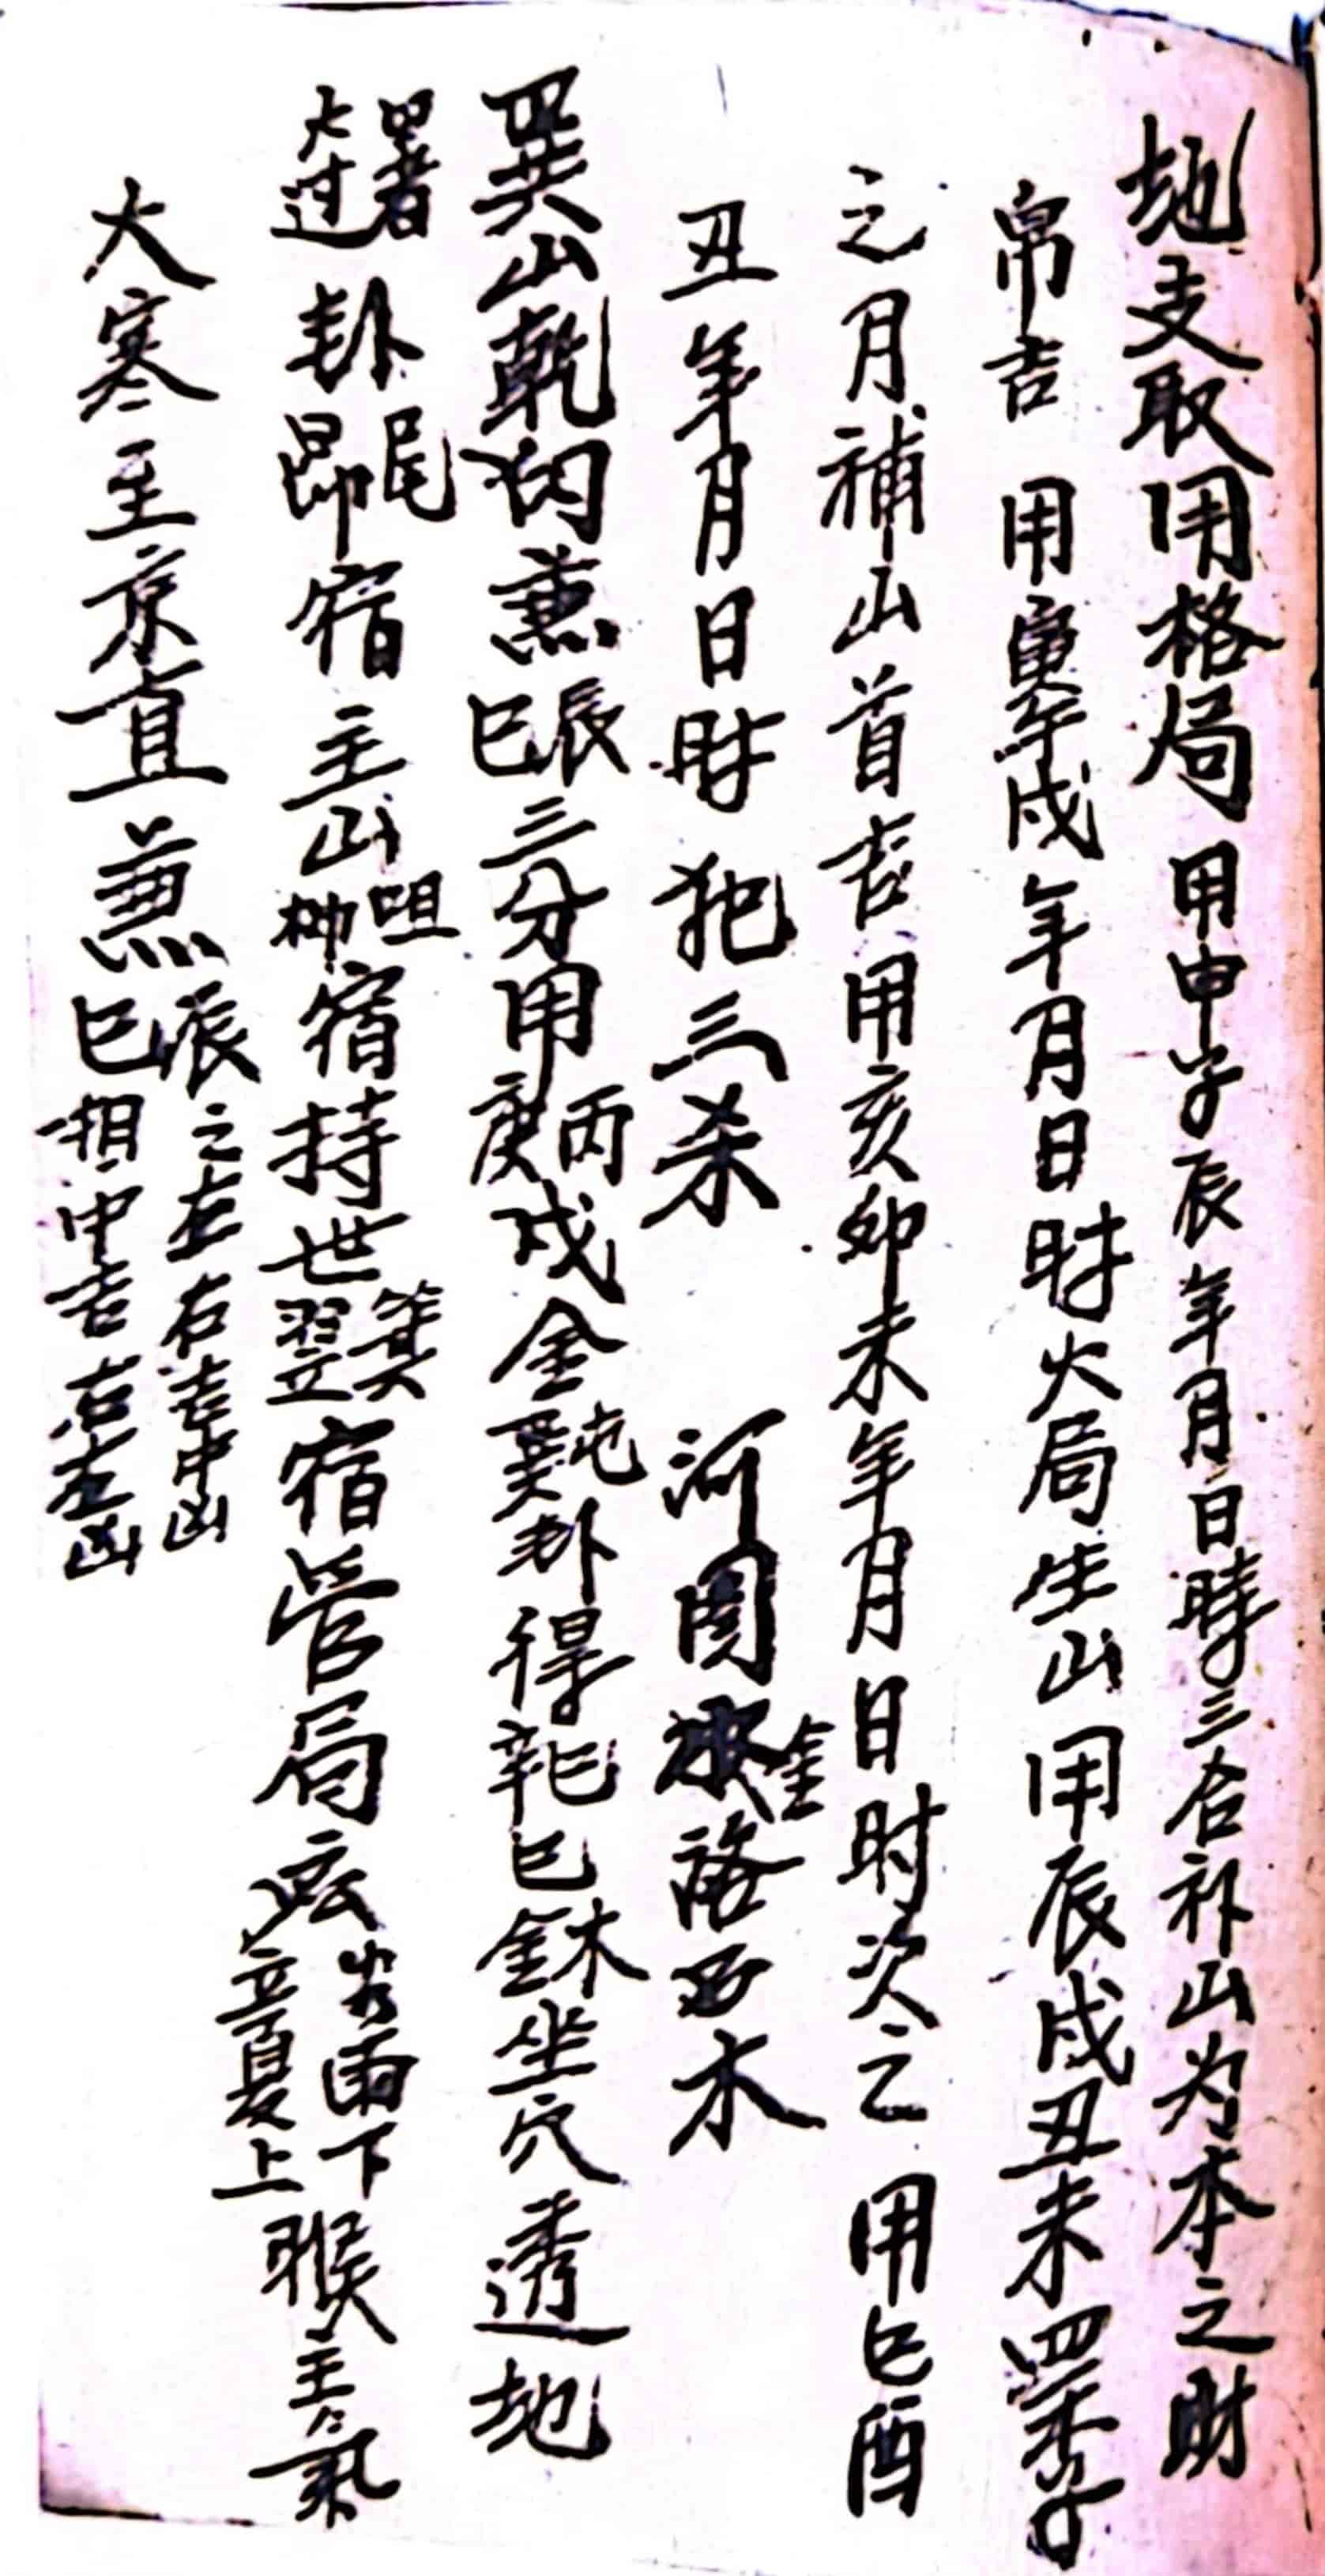 地支取用格局 用申子辰年月日時三合补山为本之財
帛吉 用寅午戌年月日时火局生山用辰戌丑未四季
之月補山首吉用亥卯未年月日时次之 用巳酉
丑年月日时犯三杀 河图 金 洛 木
巽山乾向兼辰巳三分用丙庚戌金屯巽卦得 巳木金坐穴透地
大过卦尾昴宿主山咀柳宿持世箕翌宿管局 谷雨下立夏上猴主氣
大寒至京直兼辰之左右吉中凶
巳相中吉右左凶